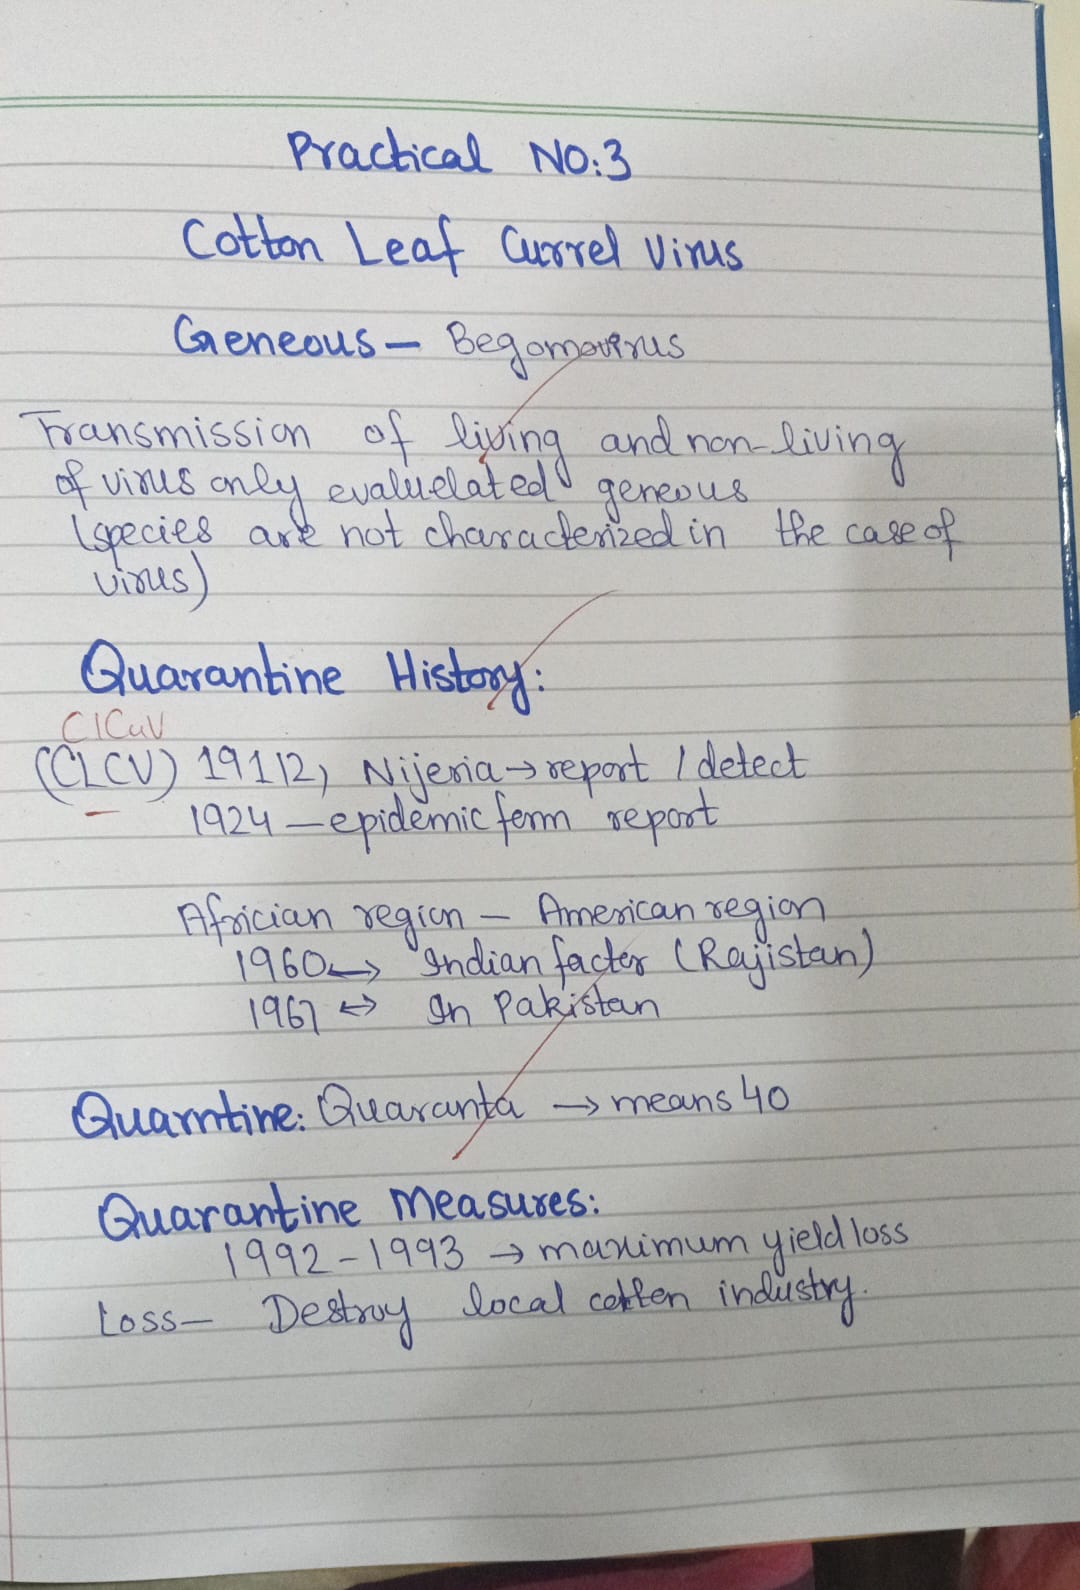 Practical NO:3
Cotton Leaf Currel Virus
Geneous — Begomovirus
Transmission of living and non-living
of virus only evaluelated geneous
(species are not characterized in the case of
virus)
Quarantine History:
ClCuV
(CLCV) 19112, Nijeria → report / detect
1924 — epidemic form report
Africian region — American region
1960 ↔ Indian facter (Rajistan)
1967 ↔ In Pakistan
Quarntine: Quaranta → means 40
Quarantine Measures:
1992 - 1993 → maximum yield loss
Loss — Destroy local cotten industry.